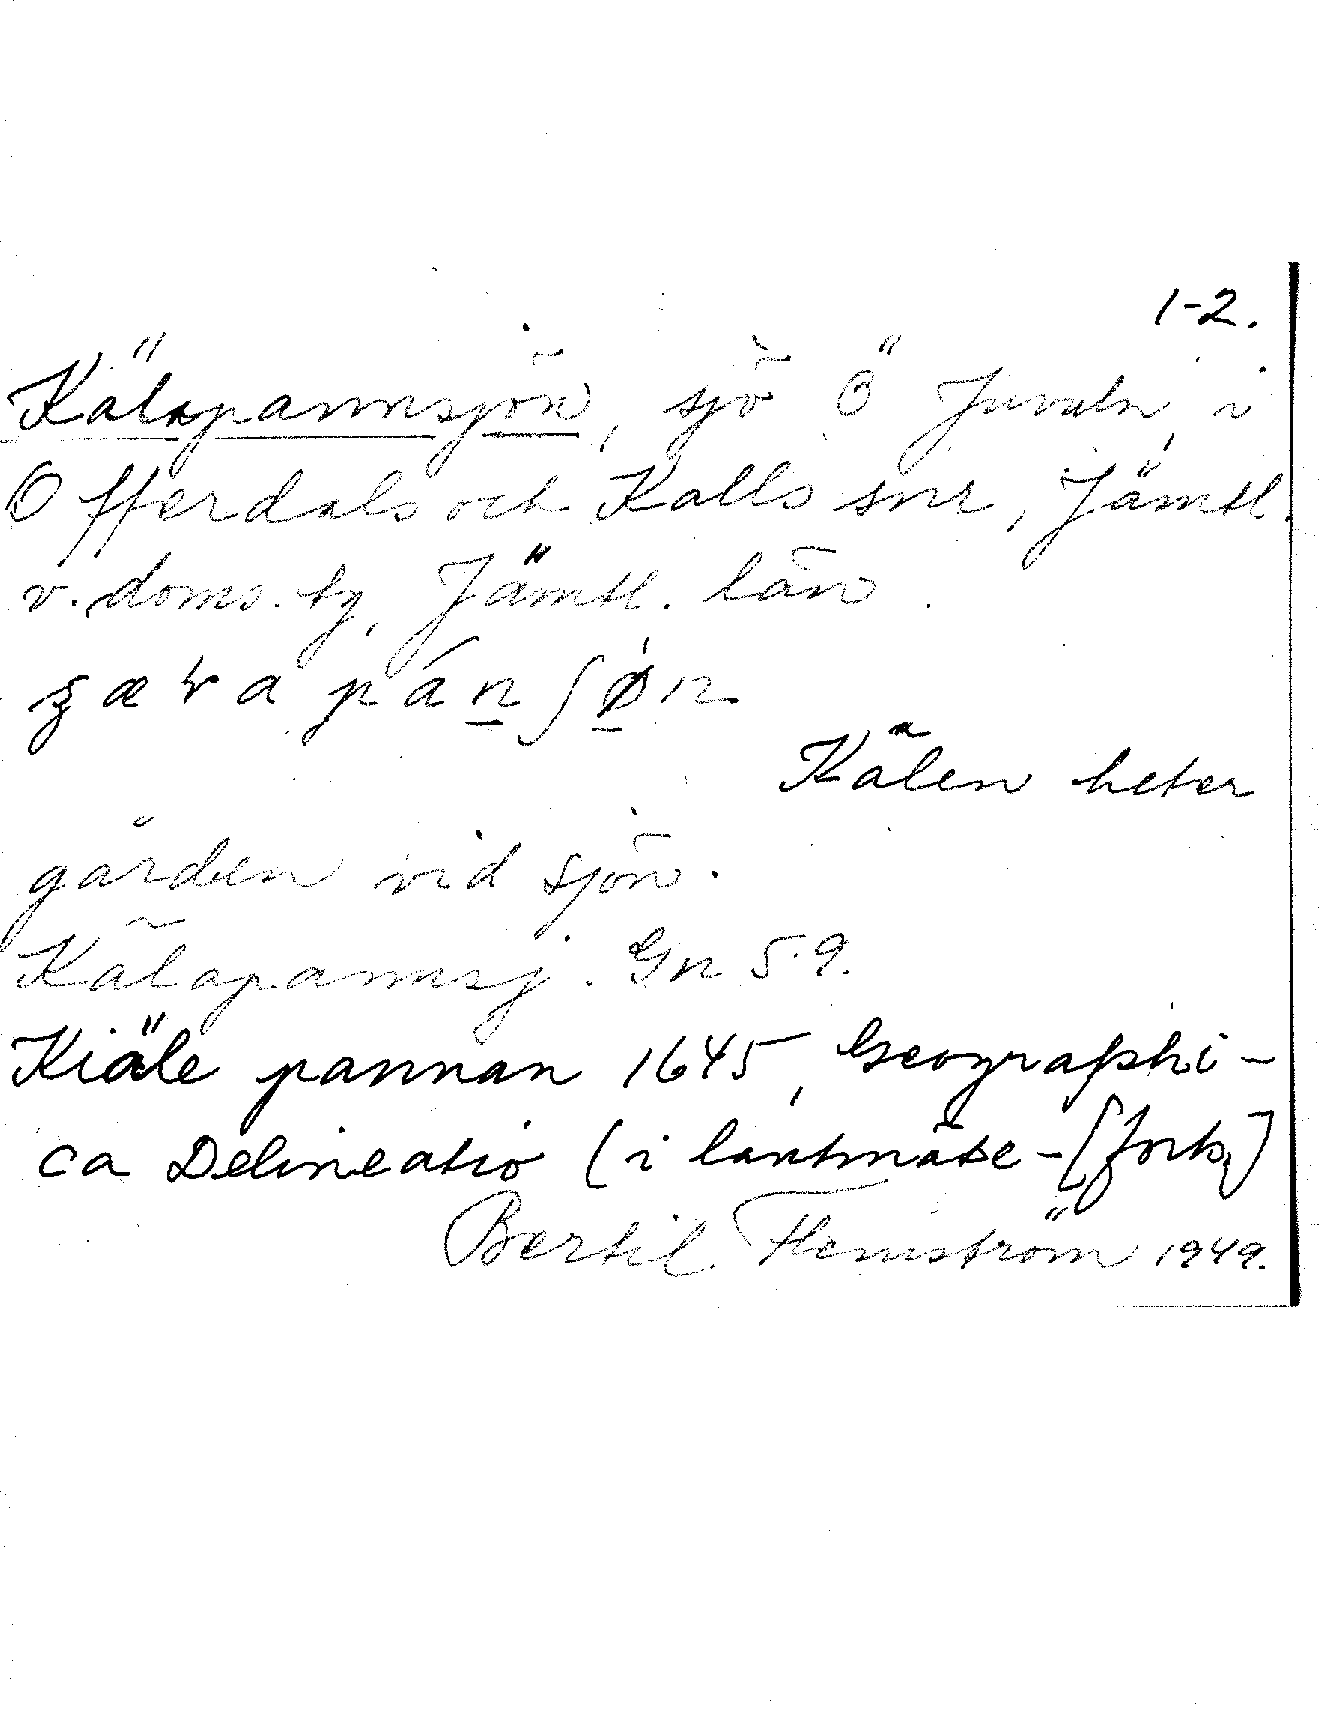 1-2.
Kälapannsjön, sjö Ö Juvuln, i
Offerdals och Kalls snr, Jämtl.
v. doms. tg, Jämtl. län.
Kälen heter
gården vid sjön.
Kälapannsj. Gn 59.
Kiäle pannan 1645, Geographi-
ca Delineatio (i lantmäte- [forts.]
Bertil Flemström 1949.